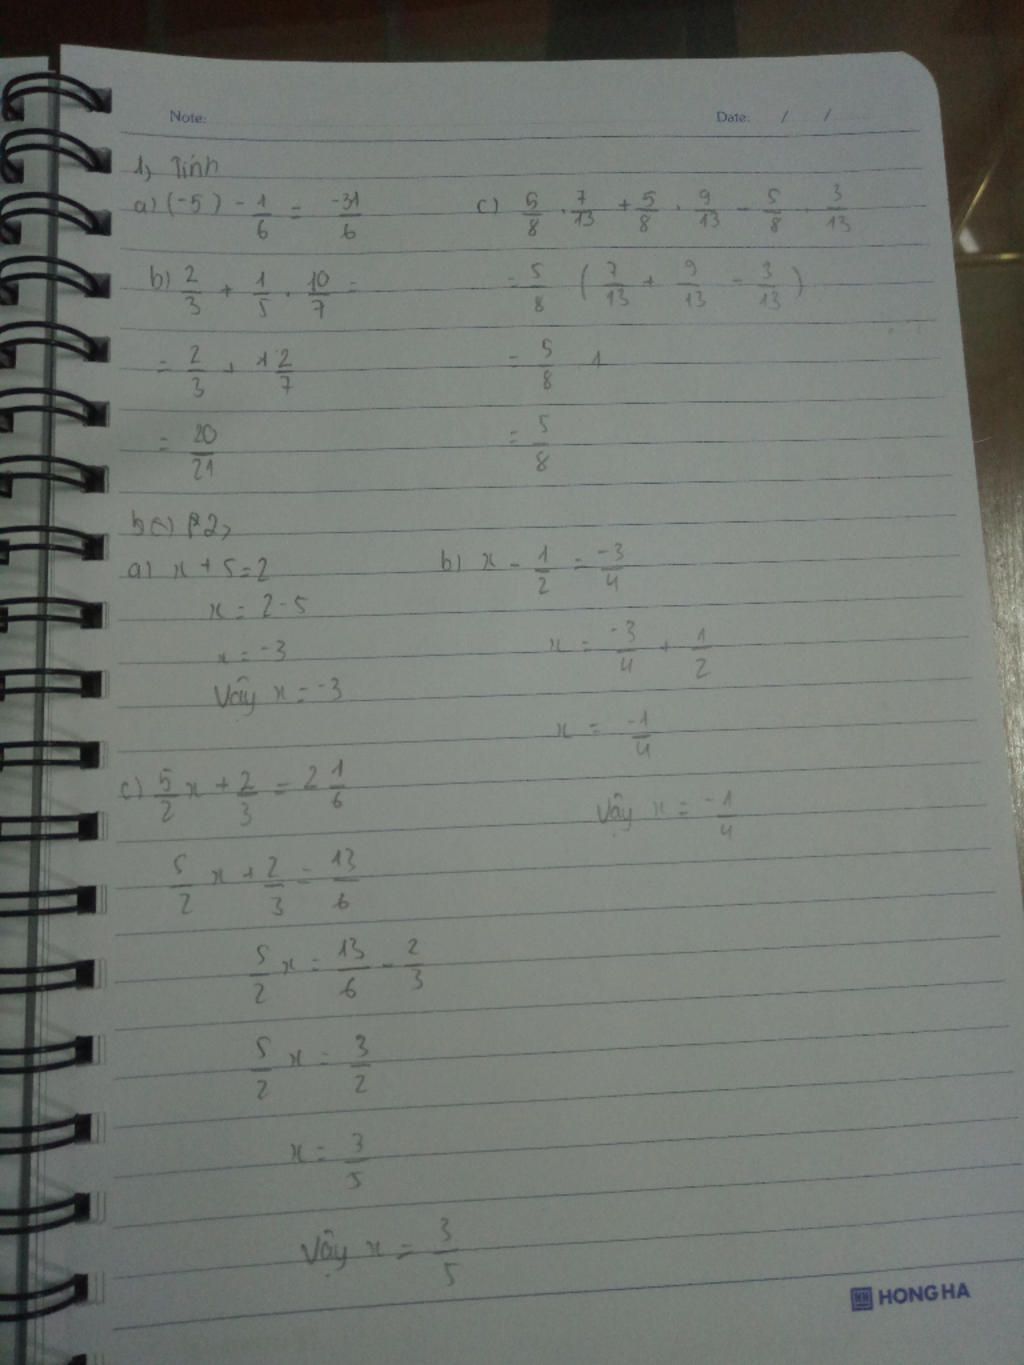 Note: Date: / /
1, Tính
a) (-5) - 1/6 = -31/6
b) 2/3 + 1/5 . 10/7 =
= 2/3 + 2/7
= 20/21
c) 5/8 . 7/13 + 5/8 . 9/13 - 5/8 . 3/13
= 5/8 ( 7/13 + 9/13 - 3/13 )
= 5/8 . 1
= 5/8
2,
a) x + 5 = 2
x = 2 - 5
x = -3
Vậy x = -3
b) x - 1/2 = -3/4
x = -3/4 + 1/2
x = -1/4
Vậy x = -1/4
c) 5/2 x + 2/3 = 2 1/6
5/2 x + 2/3 = 13/6
5/2 x = 13/6 - 2/3
5/2 x = 3/2
x = 3/5
Vậy x = 3/5
HONG HA